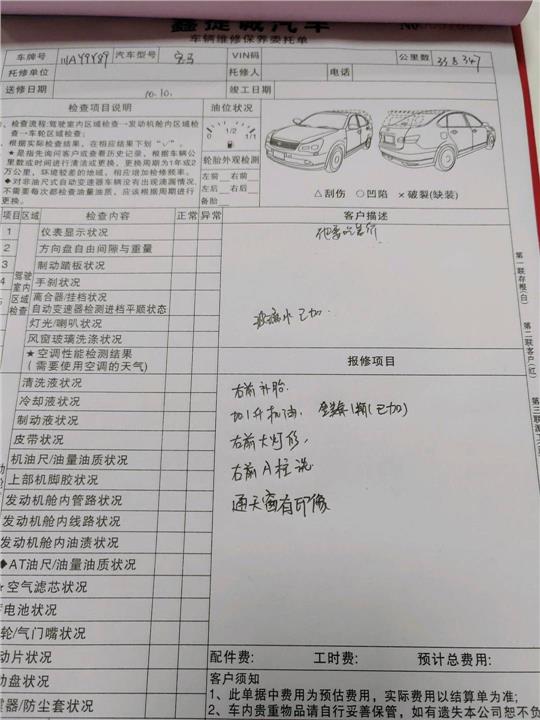 鑫捷诚汽车
车辆维修保养委托单
No
车牌号 汽车型号 宝马 VIN码 公里数 338347
托修单位 托修人 电话
送修日期 10.10. 竣工日期
检查项目说明 油位状况
检查流程:驾驶室内区域检查→发动机舱内区域检
查→车轮区域检查;
根据实际检查结果,在相应结果下划“√”。
★是指先询问客户或查看历史记录,根据车辆公
里数或时间进行清洁或更换,更换周期为1年或2
万公里,环境较差的地域,相应增加检修频率。
◆对非油尺式自动变速器车辆没有出现滴漏情况,
不需要每次都检查油量油质,应该根据周期进行
更换。
0 1/2 1/1
轮胎外观检测
左前 右前
左后 右后
备胎
△刮伤 ○凹陷 ×破裂(缺装)
项目 区域 检查内容 正常 异常 客户描述
驾驶室内区域检查
1 仪表显示状况
2 方向盘自由间隙与重量
3 制动踏板状况
4 手刹状况
离合器/挂档状况
自动变速器检测进档平顺状态
灯光/喇叭状况
风窗玻璃洗涤状况
★空调性能检测结果
(需要使用空调的天气)
玻璃水已加.
报修项目
清洗液状况
冷却液状况
制动液状况
皮带状况
机油尺/油量油质状况
上部机脚胶状况
发动机舱内管路状况
发动机舱内线路状况
发动机舱内油渍状况
◆AT油尺/油量油质状况
★空气滤芯状况
电池状况
轮/气门嘴状况
动片状况
动盘状况
器/防尘套状况
右前补胎.
加1升机油,
右前大灯修,
右前A柱洗
通天窗有印像
配件费: 工时费: 预计总费用:
客户须知
1、此单据中费用为预估费用,实际费用以结算单为准;
2、车内贵重物品请自行妥善保管,如有遗失本公司恕不负
第一联存根(白)
第二联客户(红)